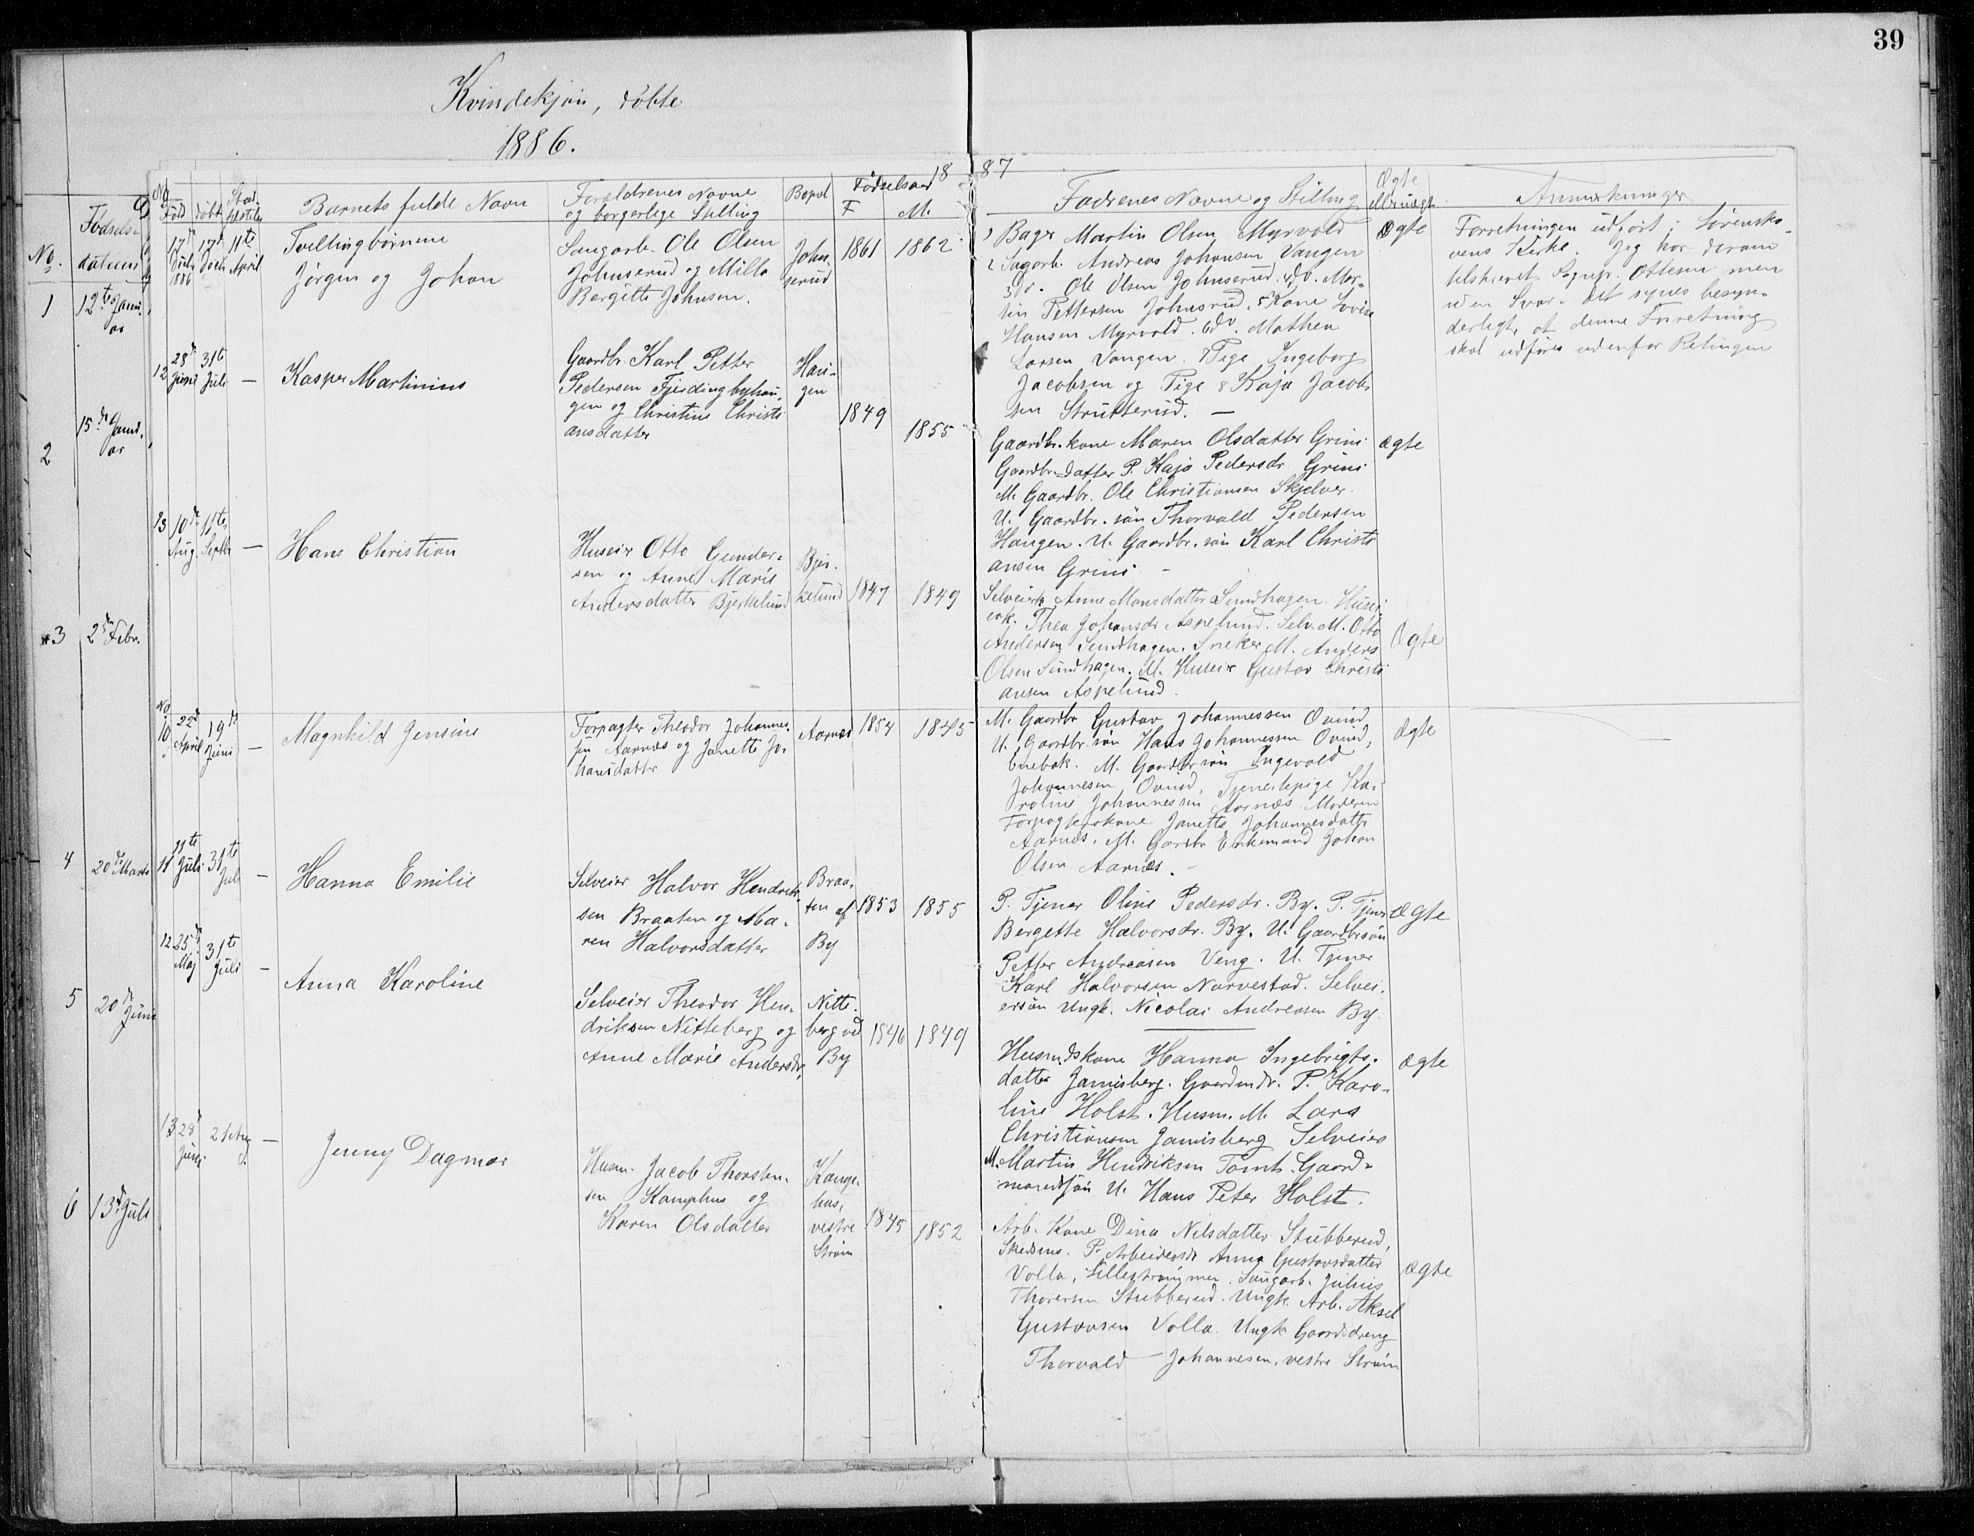 39
Kvindekjøn, døbte
1886.
1887
No. Fødselsdatum
No Født Døbt Stadfæstelse
Barnets fulde Navn
Forældrenes Navne
og borgerlige Stilling
Bopæl
Fødselsaar
F M.
Fadrenes Navne og Stilling
Ægte
Uægte
Anmærkninger
1 12te Januar
2 15de Januar
3 2den Febr.
4 20de Marts
5 20de Juni
6 13de Juli
17de Juli 1886 17de 11te April
Tvillingbørnene
Jørgen og Johan
Saugarb. Ole Olsen
Johnserud og Milla
Bergitte Johnsen.
Johnserud
1861 1862
1 Bager Martin Olsen Myrvold
2 Sagarb. Andreas Johansen Vangen
3 do. Ole Olsen Johnserud, 4 do. Martin
Pettersen Johnsrud, 5 Kone Lovise
Hansen Myrvold. 6 do. Mathea
Larsen Vangen. 7 Pige Ingeborg
Jacobsen og Pige 8 Kaja Jacobsen
Strutterud. —
Ægte
Forretningen udført i Lørensko-
vens Kirke. Jeg har derom
tilskrevet Sognepr. Ottesen men
uden Svar. Det synes besyn-
derligt, at denne Forretning
skal udføres udenfor Retingen
12 28de Juni 31te Juli —
Kasper Martinius
Gaardbr. Karl Petter
Pedersen Fjeldingbyhau-
gen og Christine Christi
ansdatter
Haugen
1849 1855
Gaardbr. kone Maren Olsdatter Grini
Gaardbr. datter P. Kaja Pedersdr Grini
M. Gaardbr. Ole Christiansen Skjelver.
U. Gaardbr. søn Thorvald Pedersen
Haugen. U. Gaardbr. søn Karl Christi
ansen Grini. —
Ægte
13 10de Aug. 11te Septb —
Hans Christian
Huseier Otto Gunder-
sen og Anne Marie
Andersdatter Bjerkelund
Bjerkelund
1847 1849
Selveierk Anne Monsdatter Sundhagen. Husei
erk. Thea Johansdr Aspelund. Selv. M. Otto
Andersen Sundhagen. Sneker M. Anders
Olsen Sundhagen. M. Huseier Gustav Christi
ansen Aspelund.
Ægte
No
10 22de April 19de Juni —
Magnhild Jensine
Forpagter Theodor Johannes-
sen Aarnæs og Janette Jo-
hansdatter
Aarnæs
1854 1845
M. Gaardbr Gustav Johannessen Ovind
U. Gaardbr. søn Hans Johannessen Ovind,
Enebak. M. Gaardbr søn Ingevald
Johannesen Ovind, Tjenestepige Ka-
roline Johannessen Aarnæs. Moderen
Forpagterkone Janette Johannesdatter
Aarnæs. M. Gardbr Enkemand Johan
Olsen Aarnæs. —
Ægte
11 11te Juli 31te Juli —
Hanna Emilie
Selveier Halvor Hendrik-
sen Braaten og Ma-
ren Halvorsdatter
Braa-
ten af
By
1853 1855
P. Tjener Oline Pedersdr. By. P. Tjener
Bergette Halvorsdr. By. U. Gaardbrsøn
Petter Andreasen Veng. U. Tjener
Karl Halvorsen Narvestad. Selvei-
ersøn Ungk. Nicolai Andreasen By.
Ægte
12 25de Maj 31te Juli —
Anna Karoline
Selveier Theodor Hen-
driksen Nitteberg og
Anne Marie Andersdr,
Nitte-
berg ved
By
1846 1849
Husmdskone Hanna Ingebrigts-
datter Jamisberg. Gaardmdr. P. Karo-
line Holst. Husm. M. Lars
Christiansen Jamisberg Selveier
M. Martin Hendriksen Tomt. Gaard-
mandssøn U. Hans Peter Holst.
Ægte
13 28de Juni 21 Aug —
Jenny Dagmar
Husm. Jacob Thorsten-
sen Kamphus og
Karen Olsdatter
Kamp-
hus,
vestre
Strøm
1845 1852
Arb. Kone Dina Nilsdatter Stubberud,
Skedsmo. P. Arbeidersdr Anna Gustavsdatter
Volla, Lillestrømmen. Saugarb. Julius
Thoresen Stubberud. Ungk. Arb. Aksel
Gustavsen Volla. Ungk Gaardsdreng
Thorvald Johannesen, vestre Strøm
Ægte